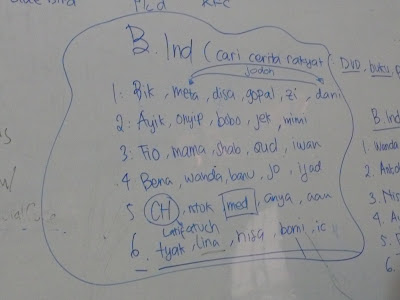 Mcd KFC
B. Ind (cari cerita rakyat : DVD, buku,
jodoh
1: Bik, meta, disa, gopal, zi, dani
2: Ayik, onyip, bobo, jek, mimi
3: Fio, mama, shab, oud, iwan
4 Bema, wanda, banu, jo, ijad
5 CH, ntok med, anya, aan
Latifatuch
6. tyak, lina, nisa, bomi, ic
B. Ind
1: Wanda
2.
3.
4.
5.
6.